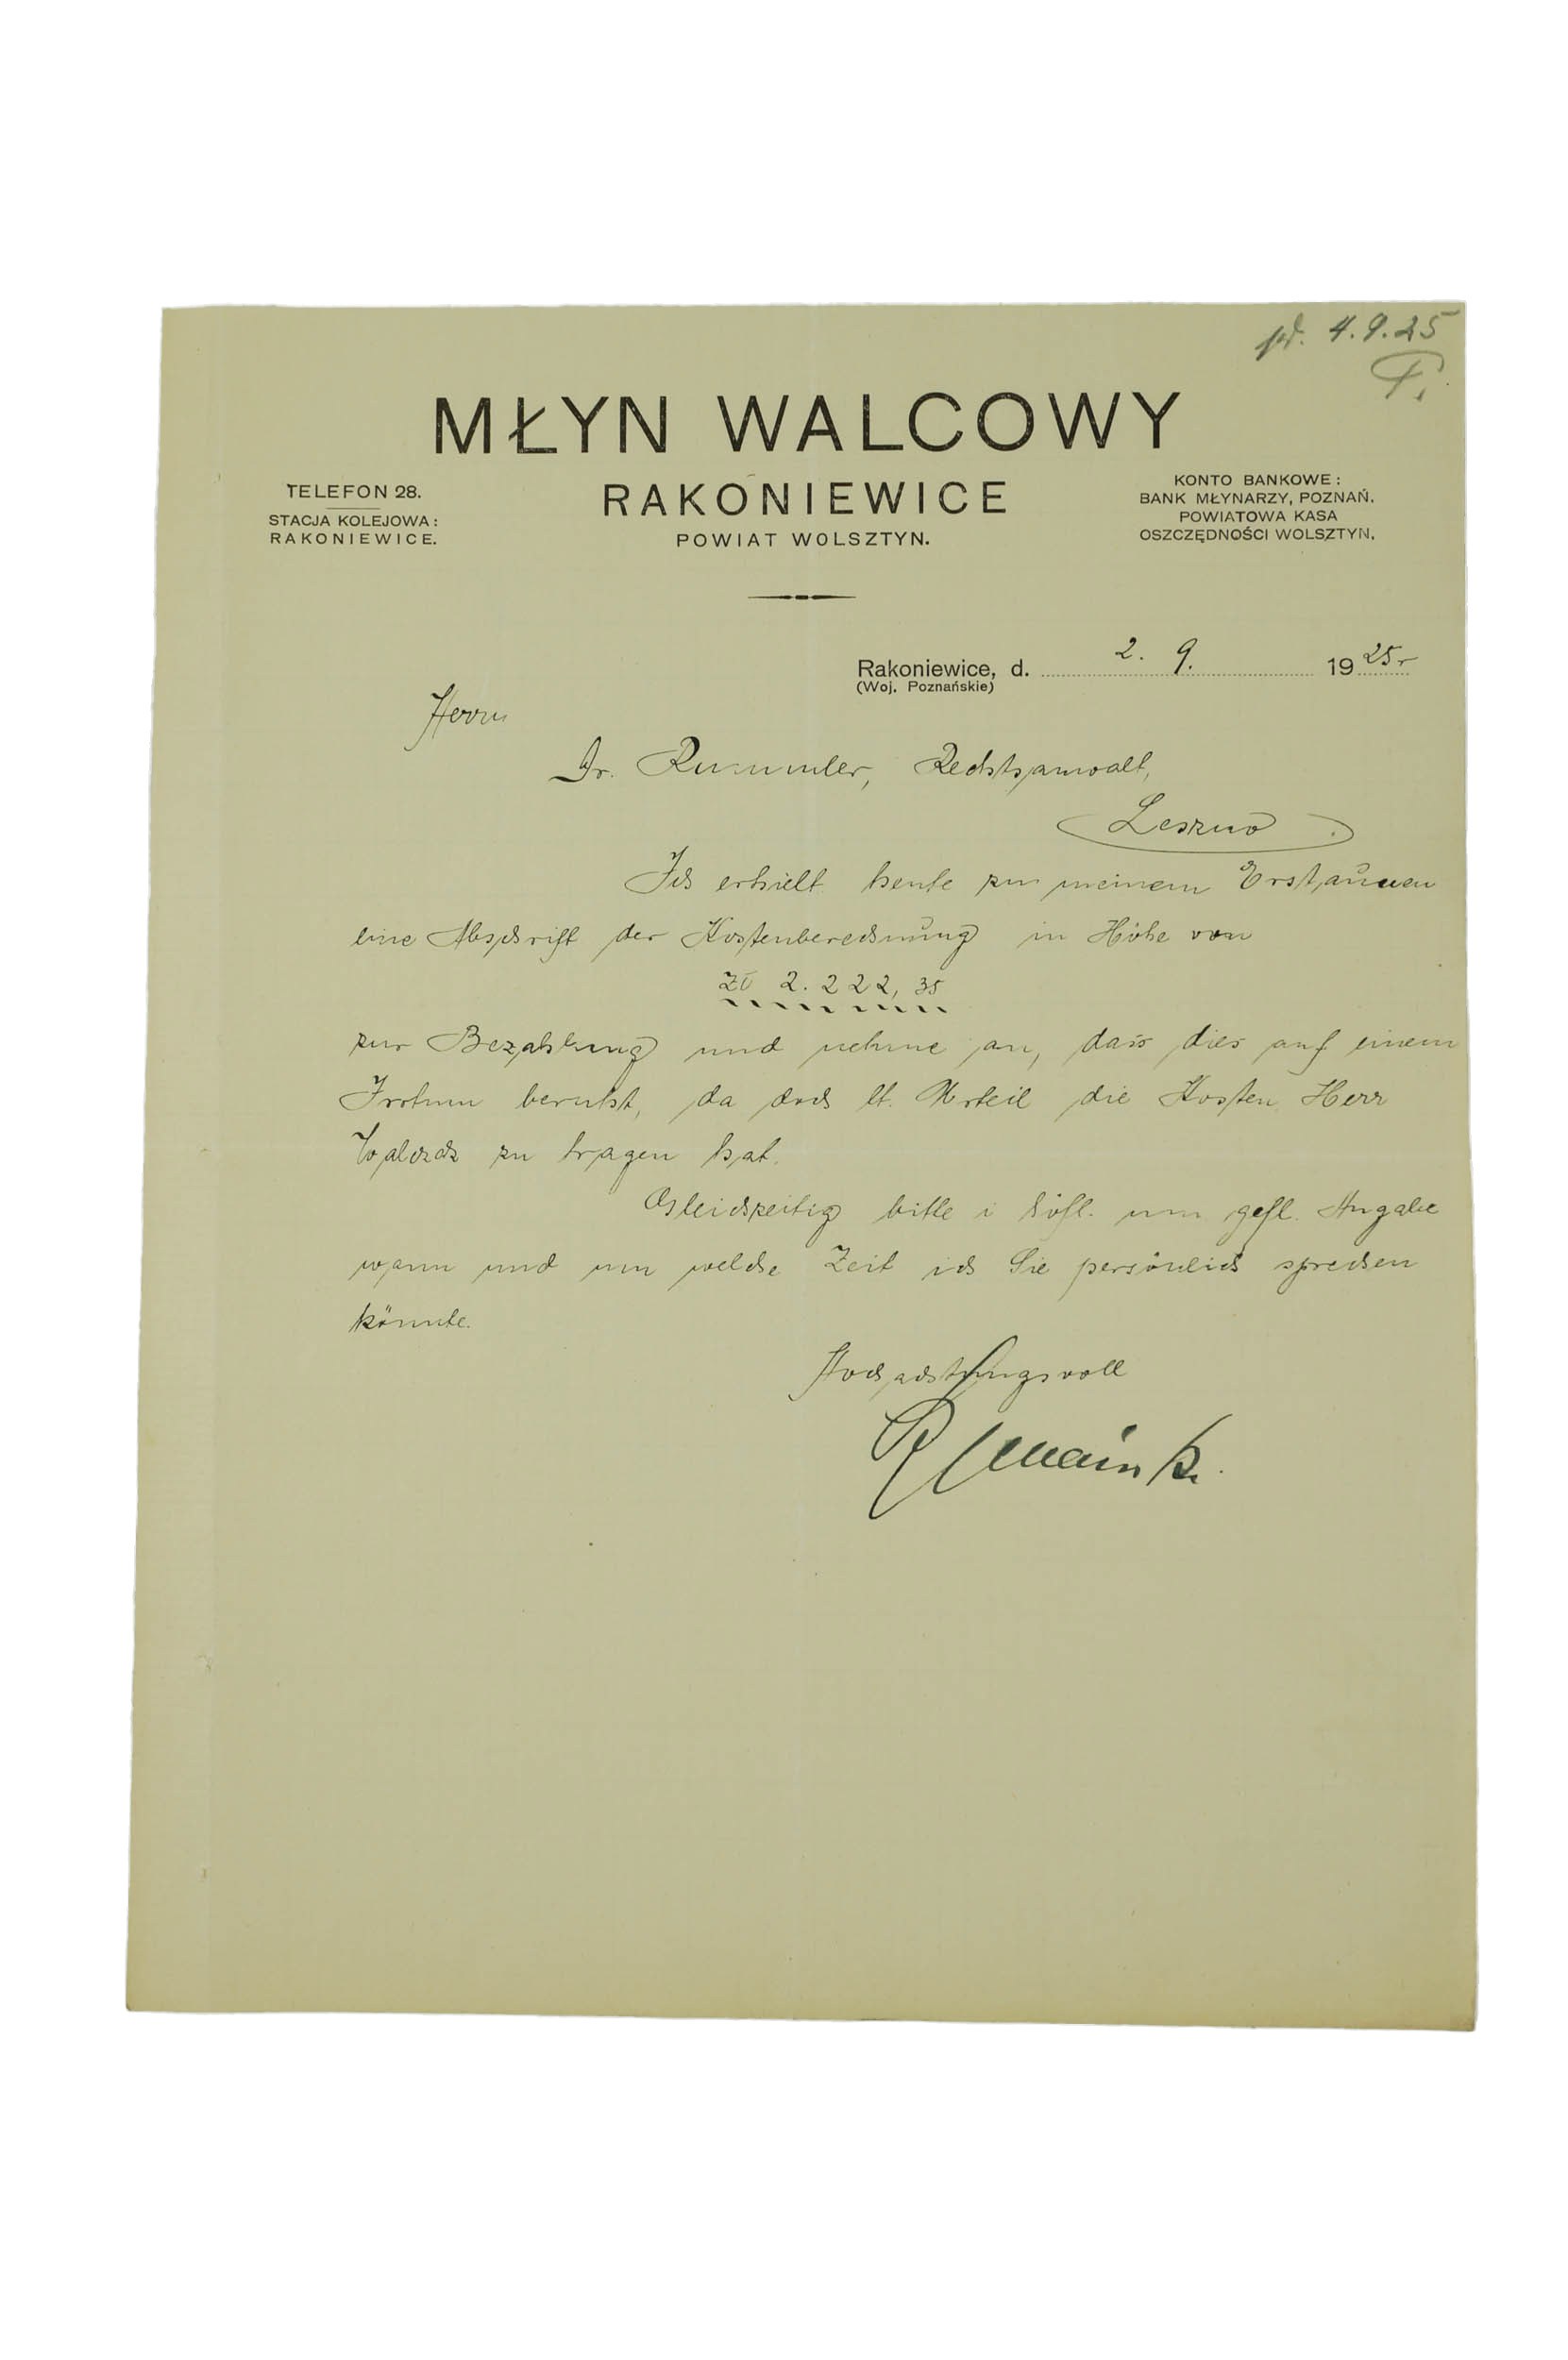 pr. 4.9.25
MŁYN WALCOWY
RAKONIEWICE
POWIAT WOLSZTYN.
TELEFON 28.
STACJA KOLEJOWA:
RAKONIEWICE.
KONTO BANKOWE:
BANK MŁYNARZY, POZNAŃ.
POWIATOWA KASA
OSZCZĘDNOŚCI WOLSZTYN.
Rakoniewice, d. 2. 9. 1925
(Woj. Poznańskie)
Herrn
Dr. Rummler, Rechtsanwalt,
Leszno.
Ich erhielt heute zu meinem Erstaunen
eine Abschrift der Kostenberechnung in Höhe von
Zł 2.222,35
zur Bezahlung und nehme an, dass dies auf einem
Irrtum beruht, da doch lt. Urteil die Kosten Herr
zu tragen hat.
Gleichzeitig bitte i höfl. um gefl. Angabe
wann und um welche Zeit ich Sie persönlich sprechen
könnte.
Hochachtungsvoll